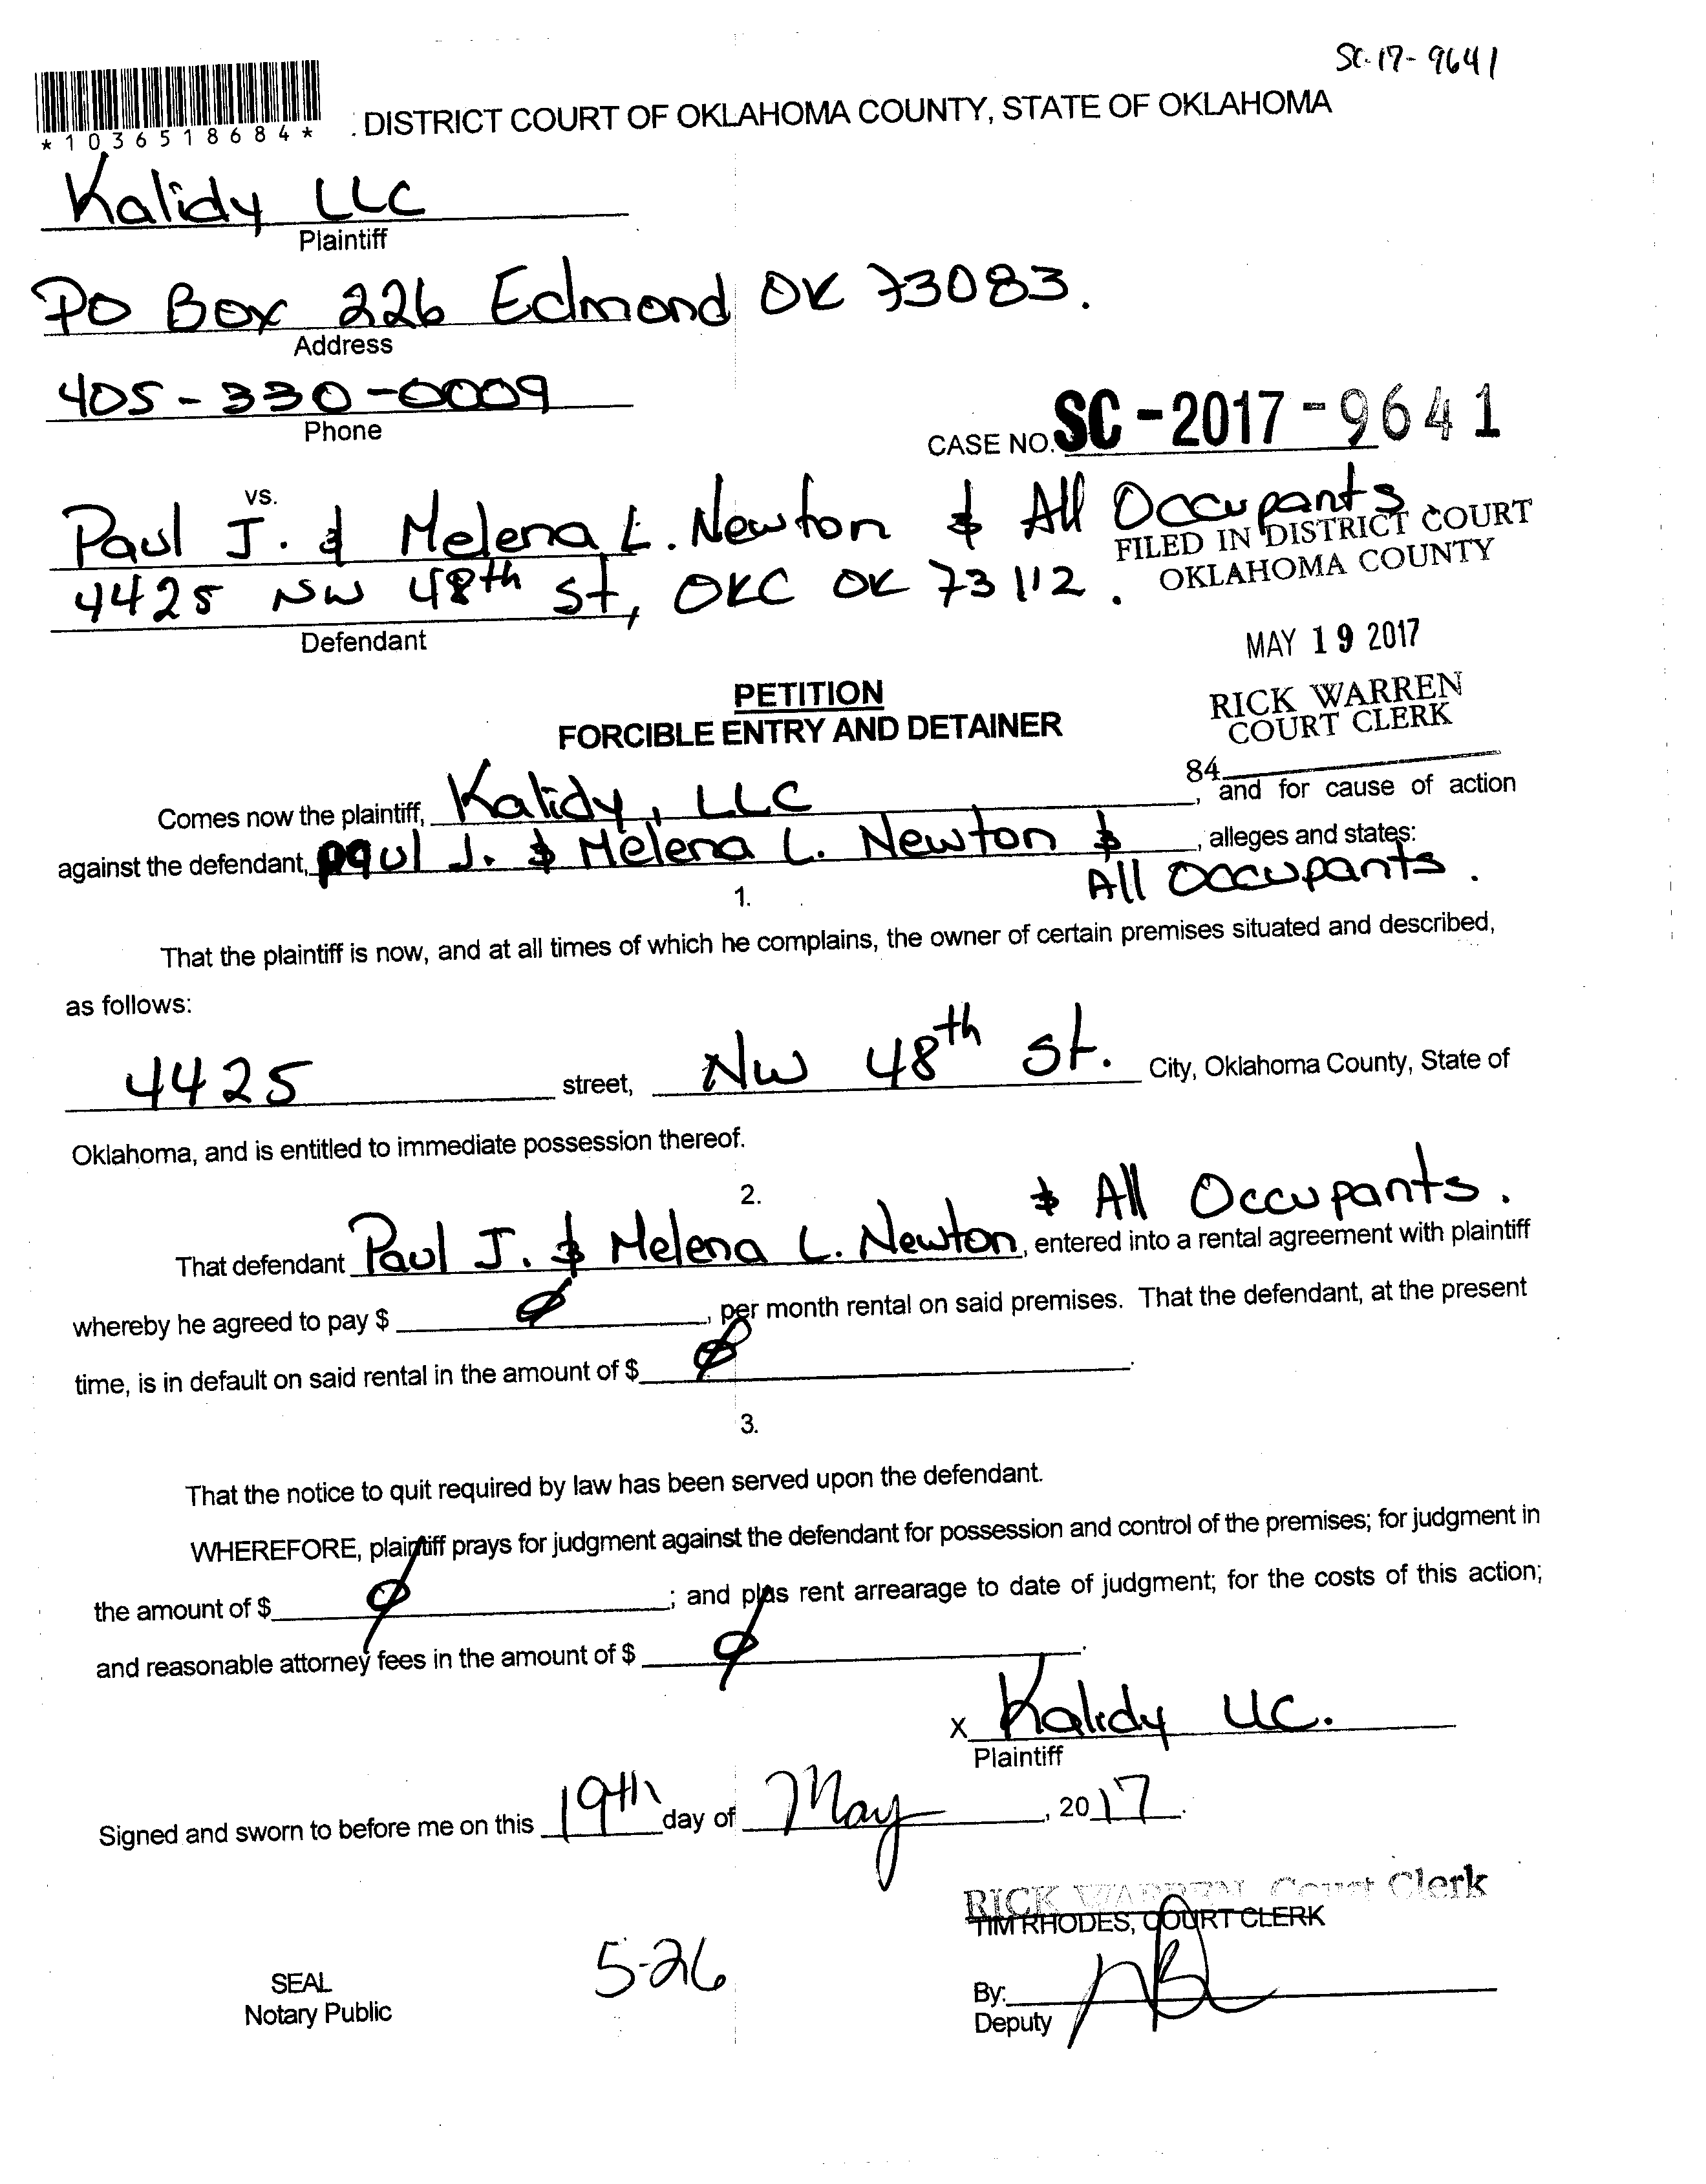 SC-17-9641
*1036518684*
DISTRICT COURT OF OKLAHOMA COUNTY, STATE OF OKLAHOMA
Kalidy LLC
Plaintiff
PO Box 226 Edmond OK 73083.
Address
405-330-0009
Phone
CASE NO. SC-2017-9641
vs.
Paul J. & Melena L. Newton & All Occupants
4425 NW 48th St, OKC OK 73112.
Defendant
FILED IN DISTRICT COURT
OKLAHOMA COUNTY
MAY 19 2017
RICK WARREN
COURT CLERK
84
PETITION
FORCIBLE ENTRY AND DETAINER
Comes now the plaintiff, Kalidy, LLC, and for cause of action
against the defendant, Paul J. & Melena L. Newton &, alleges and states:
All Occupants.
1.
That the plaintiff is now, and at all times of which he complains, the owner of certain premises situated and described,
as follows:
4425 street, NW 48th St. City, Oklahoma County, State of
Oklahoma, and is entitled to immediate possession thereof.
2.
& All Occupants.
That defendant Paul J. & Melena L. Newton, entered into a rental agreement with plaintiff
whereby he agreed to pay $ Ø, per month rental on said premises. That the defendant, at the present
time, is in default on said rental in the amount of $ Ø.
3.
That the notice to quit required by law has been served upon the defendant.
WHEREFORE, plaintiff prays for judgment against the defendant for possession and control of the premises; for judgment in
the amount of $ Ø; and plus rent arrearage to date of judgment; for the costs of this action;
and reasonable attorney fees in the amount of $ Ø.
X Kalidy LLC.
Plaintiff
Signed and sworn to before me on this 19th day of May, 2017.
RICK WARREN Court Clerk
TIM RHODES, COURT CLERK
5-26
SEAL
Notary Public
By:
Deputy